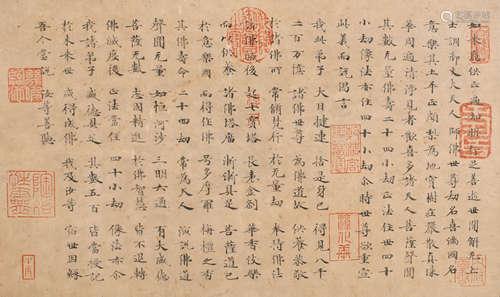 如來應供正遍知明行足善逝世間解無上
士調御丈夫天人師佛世尊劫名喜滿國名
意樂其土平正頗梨為地寶樹莊嚴散真珠
華周遍清淨見者歡喜多諸天人菩薩聲聞
其數无量佛壽二十四小劫正法住世四十
小劫像法亦住四十小劫尒時世尊欲重宣
此義而說偈言
我此弟子 大目揵連 捨是身已 得見八千
二百万億 諸佛世尊 為佛道故 供養恭敬
於諸佛所 常修梵行 於无量劫 奉持佛法
諸佛滅後 起七寶塔 長表金剎 華香伎樂
而以供養 諸佛塔廟 漸漸具足 菩薩道已
於意樂國 而得作佛 号多摩羅 栴檀之香
其佛壽命 二十四劫 常為天人 演說佛道
聲聞无量 如恒河沙 三明六通 有大威德
菩薩无數 志固精進 於佛智慧 皆不退轉
佛滅度後 正法當住 四十小劫 像法亦尒
我諸弟子 威德具足 其數五百 皆當授記
於未來世 咸得成佛 我及汝等 宿世因緣
吾今當說 汝等善聽